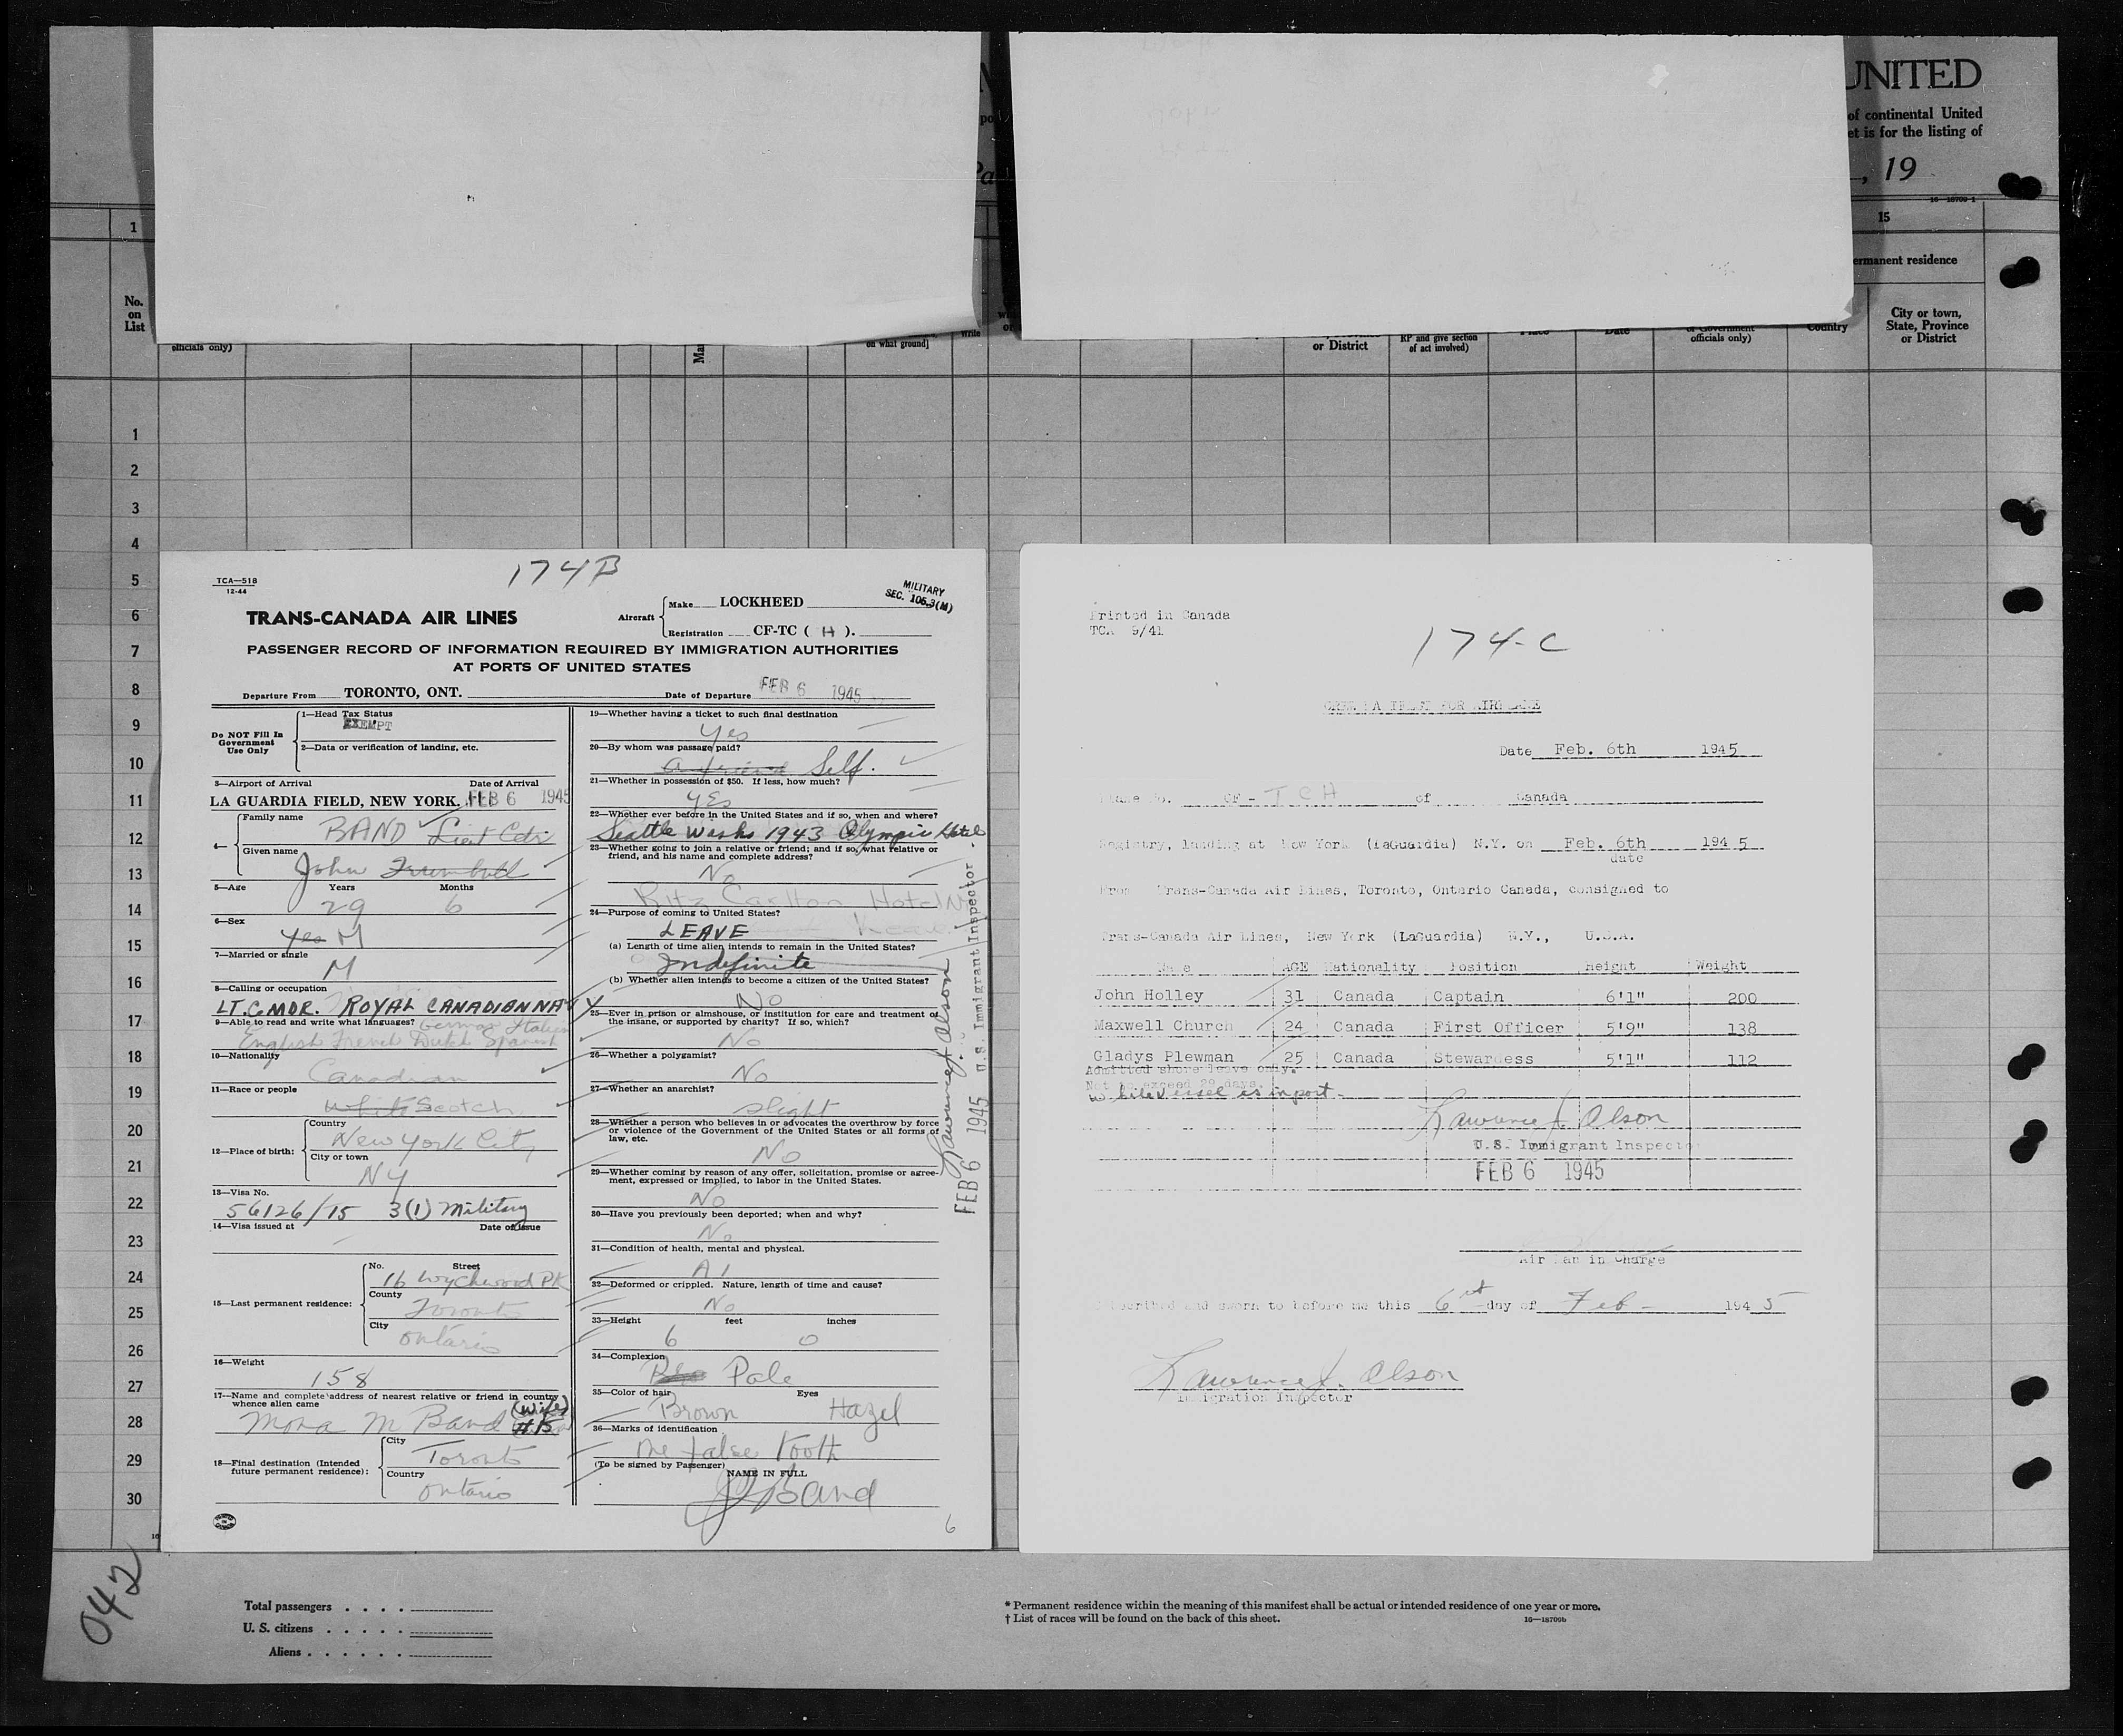 UNITED
of continental United
et is for the listing of
, 19
16—18709-1
1
15
ermanent residence
No.
on
List
officials only)
on what ground]
or District
RP and give section
of act involved)
Place
Date
or Government
officials only)
Country
City or town,
State, Province
or District
1
2
3
4
5
6
7
8
9
10
11
12
13
14
15
16
17
18
19
20
21
22
23
24
25
26
27
28
29
30
174B
TCA—518
12-44
MILITARY
SEC. 105.3(M)
TRANS-CANADA AIR LINES
Aircraft
Make LOCKHEED
Registration CF-TC ( H ).
PASSENGER RECORD OF INFORMATION REQUIRED BY IMMIGRATION AUTHORITIES
AT PORTS OF UNITED STATES
Departure From TORONTO, ONT. Date of Departure FEB 6 1945
Do NOT Fill In
Government
Use Only
1—Head Tax Status
EXEMPT
2—Data or verification of landing, etc.
3—Airport of Arrival Date of Arrival
LA GUARDIA FIELD, NEW YORK. FEB 6 1945
4—
Family name
BAND Lieut Cdr
Given name
John Trumbull
5—Age Years Months
29 6
6—Sex
Yes M
7—Married or single
M
8—Calling or occupation
LT. CMDR. ROYAL CANADIAN NAVY
9—Able to read and write what languages? German Italian
English French Dutch Spanish
10—Nationality
Canadian
11—Race or people
White Scotch
12—Place of birth:
Country
New York City
City or town
NY
13—Visa No.
56126/15 3(1) Military
14—Visa issued at Date of issue
15—Last permanent residence:
No. Street
16 Wychwood PK
County
Toronto
City
Ontario
16—Weight
158
17—Name and complete address of nearest relative or friend in country
whence alien came
(Wife)
Mona M Band #15
18—Final destination (Intended
future permanent residence):
City
Toronto
Country
Ontario
19—Whether having a ticket to such final destination
Yes
20—By whom was passage paid?
a friend Self.
21—Whether in possession of $50. If less, how much?
YES
22—Whether ever before in the United States and if so, when and where?
Seattle Wash 1943 Olympic Hotel
23—Whether going to join a relative or friend; and if so, what relative or
friend, and his name and complete address?
No
Ritz Carlton Hotel NY
24—Purpose of coming to United States?
LEAVE
(a) Length of time alien intends to remain in the United States?
Indefinite
(b) Whether alien intends to become a citizen of the United States?
No
25—Ever in prison or almshouse, or institution for care and treatment of
the insane, or supported by charity? If so, which?
No
26—Whether a polygamist?
No
27—Whether an anarchist?
slight
28—Whether a person who believes in or advocates the overthrow by force
or violence of the Government of the United States or all forms of
law, etc.
No
29—Whether coming by reason of any offer, solicitation, promise or agree-
ment, expressed or implied, to labor in the United States.
No
30—Have you previously been deported; when and why?
No
31—Condition of health, mental and physical.
A1
32—Deformed or crippled. Nature, length of time and cause?
No
33—Height feet inches
6 0
34—Complexion
Pale
35—Color of hair Eyes
Brown Hazel
36—Marks of identification
One false tooth
(To be signed by Passenger)
NAME IN FULL
J Band
6
Lawrence J. Olson
FEB 6 1945 U.S. Immigrant Inspector
Printed in Canada
TCA 9/41
174-C
CREW MANIFEST FOR AIRPLANE
Date Feb. 6th 1945
Plane No. CF - TCH of Canada
Registry, landing at New York (LaGuardia) N.Y. on Feb. 6th 1945
date
From Trans-Canada Air Lines, Toronto, Ontario Canada, consigned to
Trans-Canada Air Lines, New York (LaGuardia) N.Y., U.S.A.
Name AGE Nationality Position Height Weight
John Holley 31 Canada Captain 6'1" 200
Maxwell Church 24 Canada First Officer 5'9" 138
Gladys Plewman 25 Canada Stewardess 5'1" 112
Admitted shore leave only.
Not to exceed 29 days.
while vessel is in port.
Lawrence J. Olson
U.S. Immigrant Inspector
FEB 6 1945
Air Man in Charge
Subscribed and sworn to before me this 6th day of Feb- 1945
Lawrence J. Olson
Immigration Inspector
042
Total passengers . . . .
U. S. citizens . . . . .
Aliens . . . . . .
* Permanent residence within the meaning of this manifest shall be actual or intended residence of one year or more.
† List of races will be found on the back of this sheet.
16—18709b